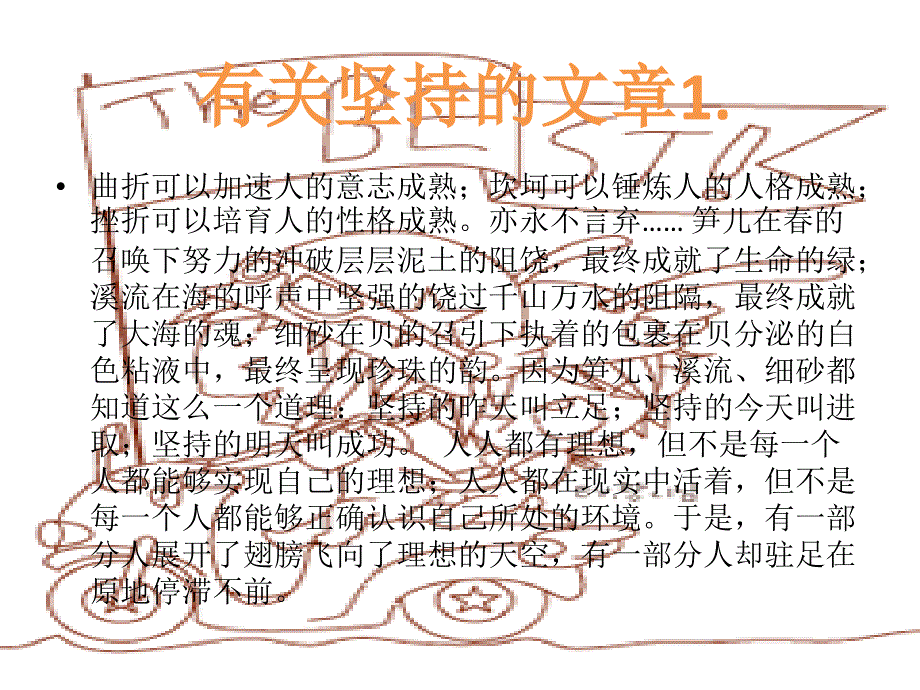 有关坚持的文章1.
THE BEST
• 曲折可以加速人的意志成熟；坎坷可以锤炼人的人格成熟；
挫折可以培育人的性格成熟。亦永不言弃...... 笋儿在春的
召唤下努力的冲破层层泥土的阻饶，最终成就了生命的绿；
溪流在海的呼声中坚强的饶过千山万水的阻隔，最终成就
了大海的魂；细砂在贝的召引下执着的包裹在贝分泌的白
色粘液中，最终呈现珍珠的韵。因为笋儿、溪流、细砂都
知道这么一个道理：坚持的昨天叫立足；坚持的今天叫进
取；坚持的明天叫成功。 人人都有理想，但不是每一个
人都能够实现自己的理想；人人都在现实中活着，但不是
每一个人都能够正确认识自己所处的环境。于是，有一部
分人展开了翅膀飞向了理想的天空，有一部分人却驻足在
原地停滞不前。